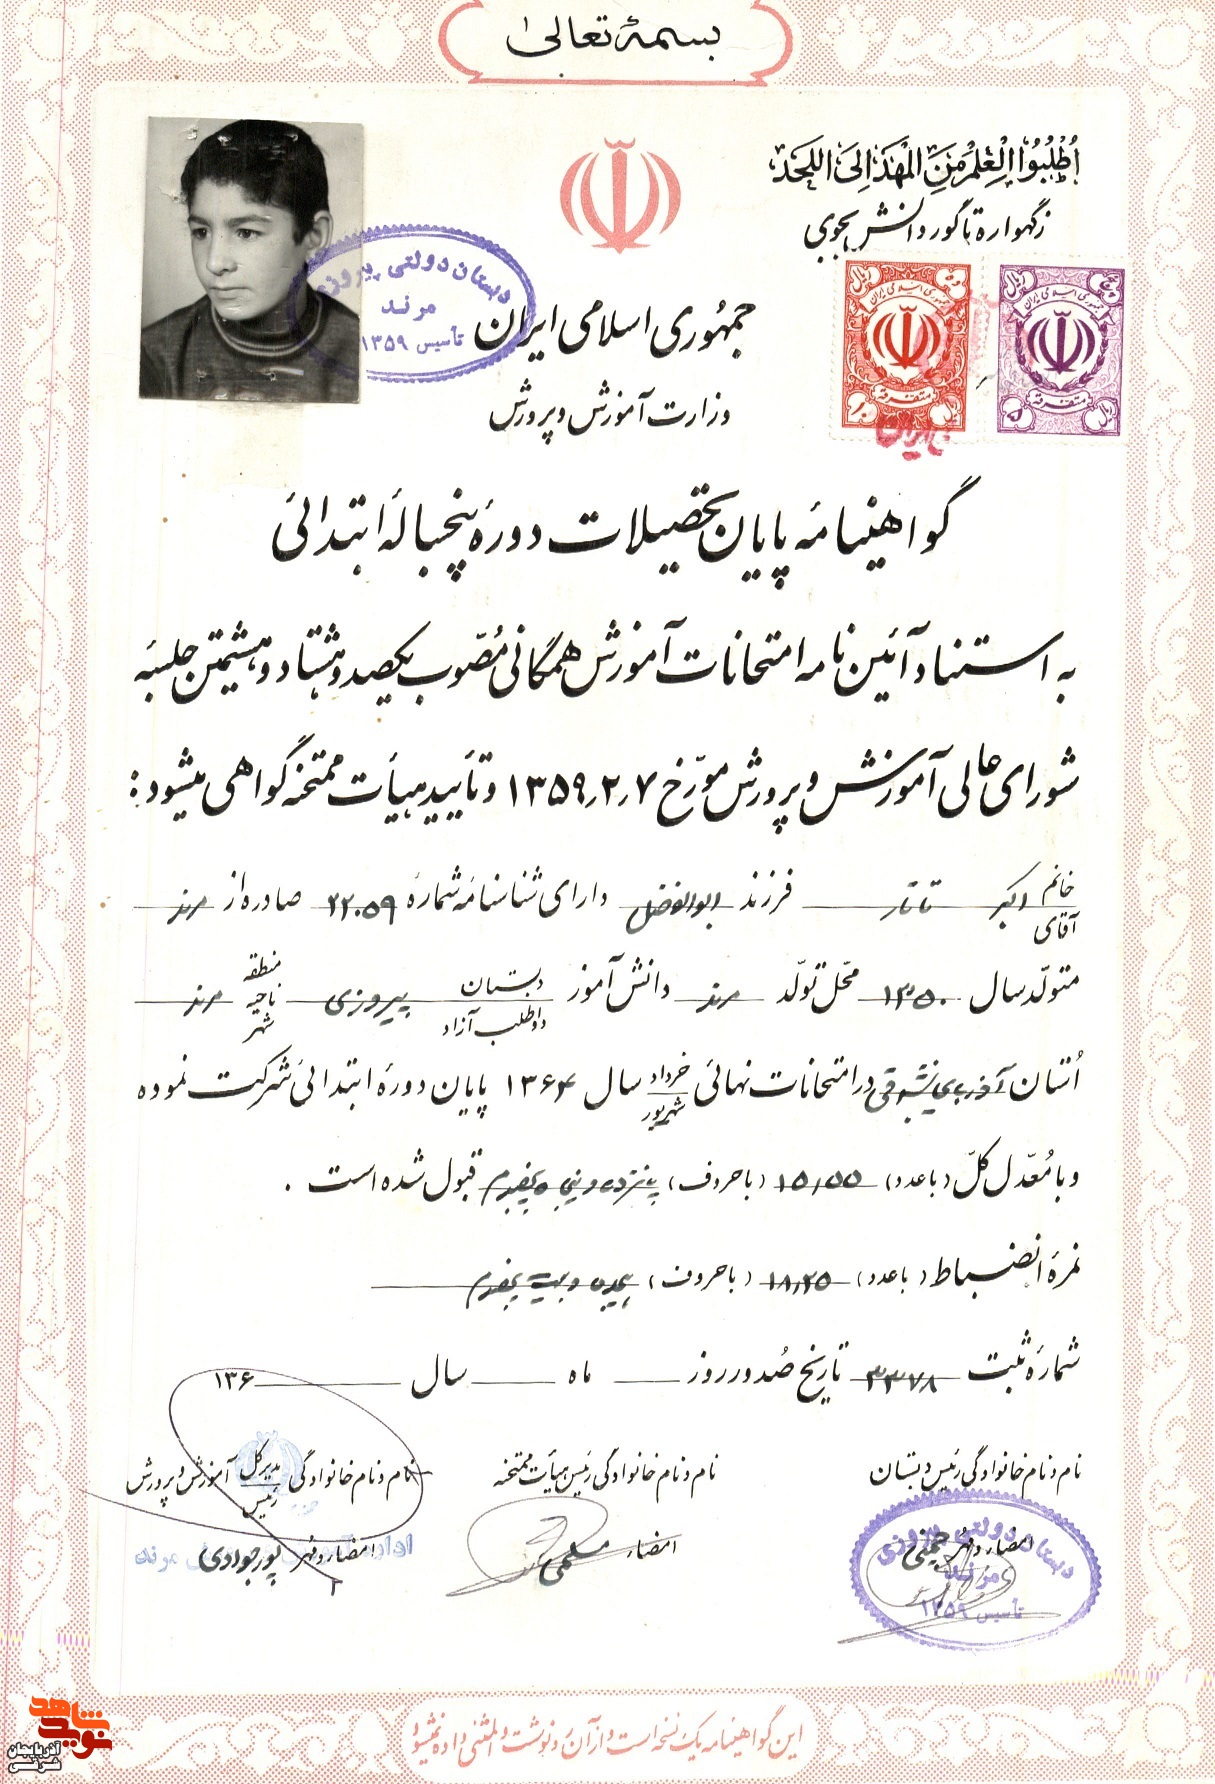 بسمهٔ تعالی
اُطْلُبُوا الْعِلْمَ مِنَ الْمَهْدِ اِلَی اللَّحَدْ
زگهواره تا گور دانش بجوی
جمهوری اسلامی ایران
وزارت آموزش و پرورش
دبستان دولتی پیروزی
مرند
تأسیس ۱۳۵۹
گواهینامهٔ پایان تحصیلات دورهٔ پنجسالهٔ ابتدائی
به استناد آئین نامه امتحانات آموزش همگانی مُصوّب یکصد و هشتاد و هشتمین جلسهٔ
شورای عالی آموزش و پرورش مورّخ ۱۳۵۹٫۲٫۷ و تأیید هیأت ممتحنه گواهی میشود:
خانم آقای اکبر تاتار فرزند ابوالفضل دارای شناسنامهٔ شمارهٔ ۲۲۰۵۹ صادره از مرند
متولّد سال ۱۳۵۰ محل تولّد مرند دانش آموز دبستان داوطلب آزاد پیروزی منطقه ناحیه شهر مرند
اُستان آذربایجانشرقی در امتحانات نهائی خرداد شهریور سال ۱۳۶۴ پایان دورهٔ ابتدائی شرکت نموده
و با مُعدّل کلّ (با عدد) ۱۵٫۵۵ (با حروف) پانزده و پنجاه و پنجصدم قبول شده است .
نمرهٔ انضباط (با عدد) ۱۸٫۲۵ (با حروف) هیجده و بیست و پنجصدم
شمارهٔ ثبت ۳۳۷۸ تاریخ صُدور روز ماه سال ۱۳۶
نام و نام خانوادگی رئیس دبستان
نام و نام خانوادگی رئیس هیأت ممتحنه
نام و نام خانوادگی مدیر کل رئیس آموزش و پرورش
امضاء و مهر
امضاء
امضاء و مهر پورجوادی
دبستان دولتی پیروزی
مرند
تأسیس ۱۳۵۹
این گواهینامه یک نسخه است و از آن رونوشت و المثنی داده نمیشود
نوید شاهد
آذربایجان شرقی